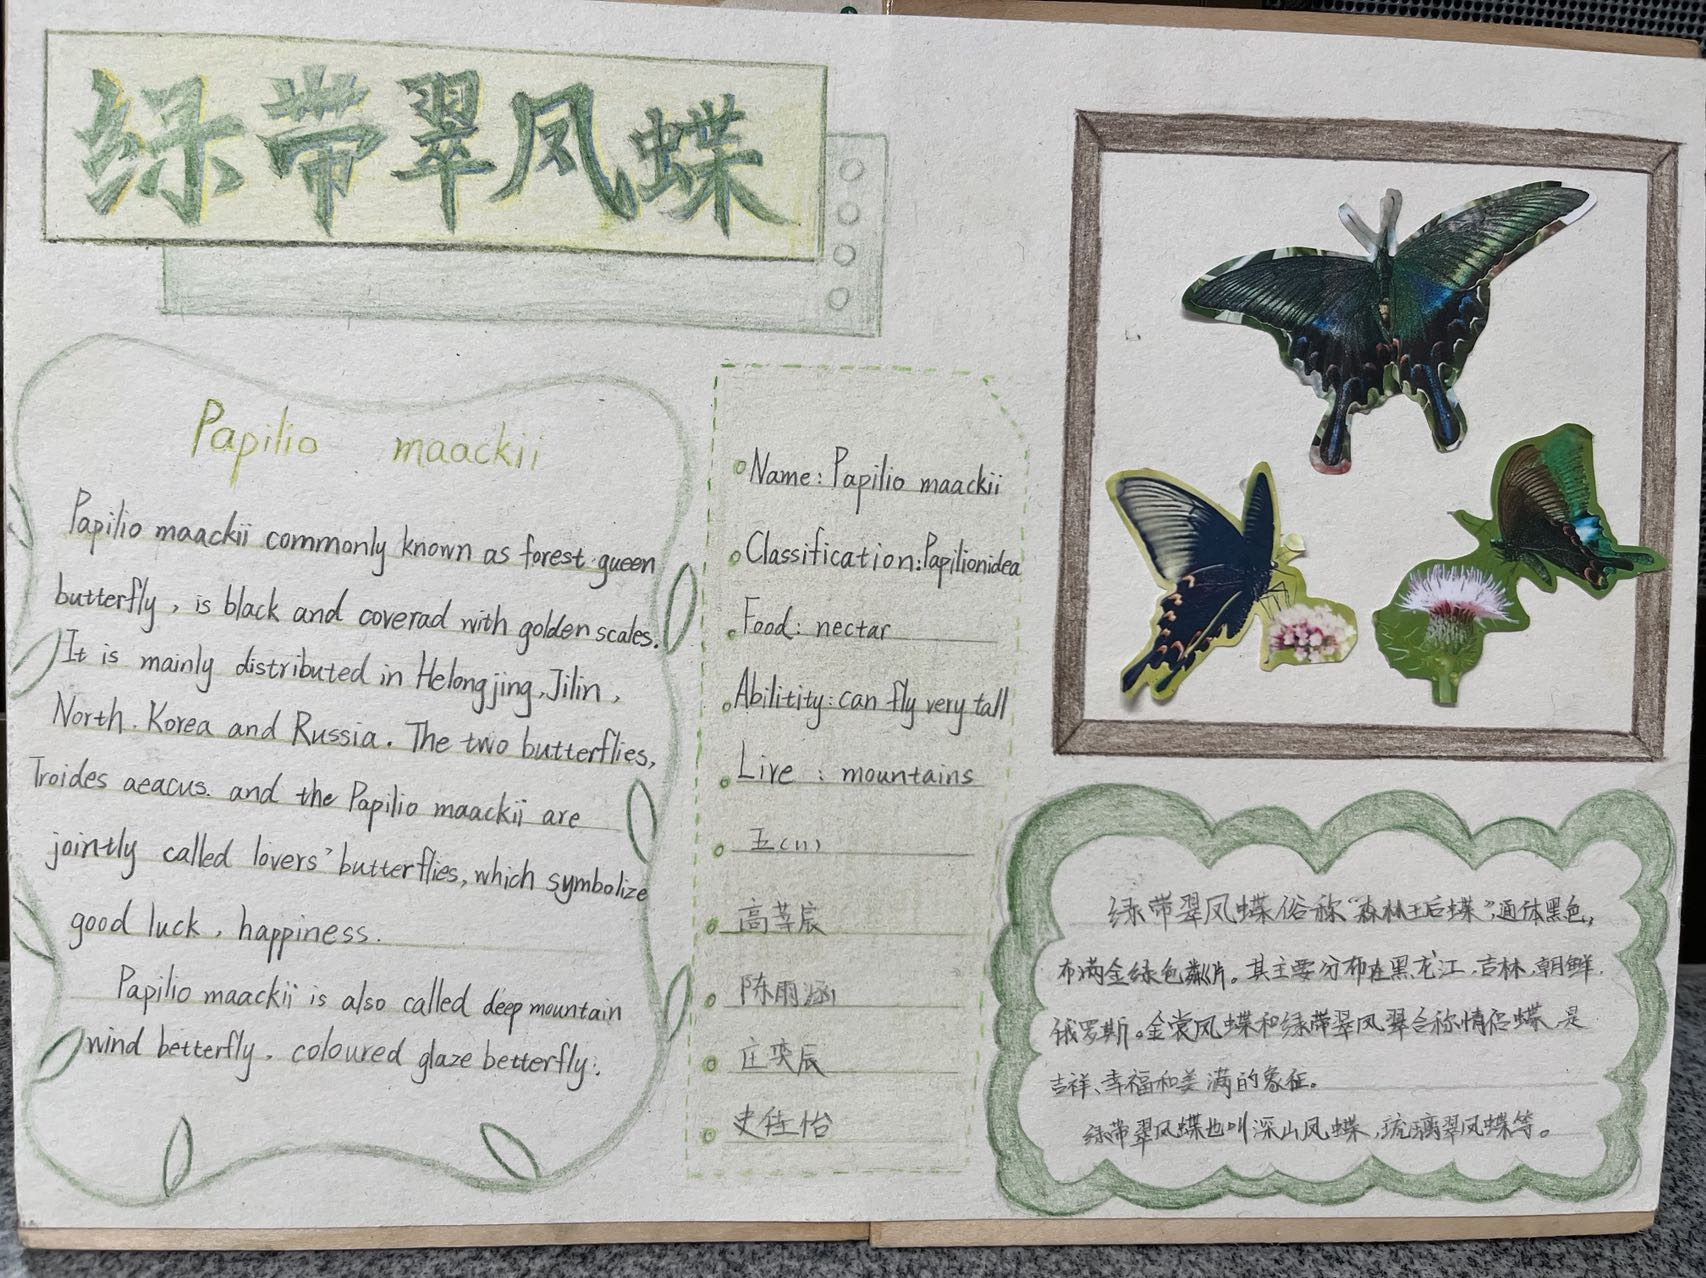 绿带翠凤蝶
Papilio maackii
Papilio maackii commonly known as forest queen
butterfly, is black and coverad with golden scales.
It is mainly distributed in Helongjing, Jilin,
North. Korea and Russia. The two butterflies,
Troides aeacus. and the Papilio maackii are
jointly called lovers' butterflies, which symbolize
good luck, happiness.
Papilio maackii is also called deep mountain
wind betterfly, coloured glaze betterfly.
Name: Papilio maackii
Classification: Papilionidea
Food: nectar
Abilitity: can fly very tall
Live : mountains
五(11)
高莘辰
陈雨涵
庄奕辰
史佳怡
绿带翠凤蝶俗称“森林王后蝶”,通体黑色,
布满金绿色鳞片。其主要分布在黑龙江,吉林,朝鲜,
俄罗斯。金裳凤蝶和绿带翠凤翠合称情侣蝶,是
吉祥、幸福和美满的象征。
绿带翠凤蝶也叫深山凤蝶,琉璃翠凤蝶等。